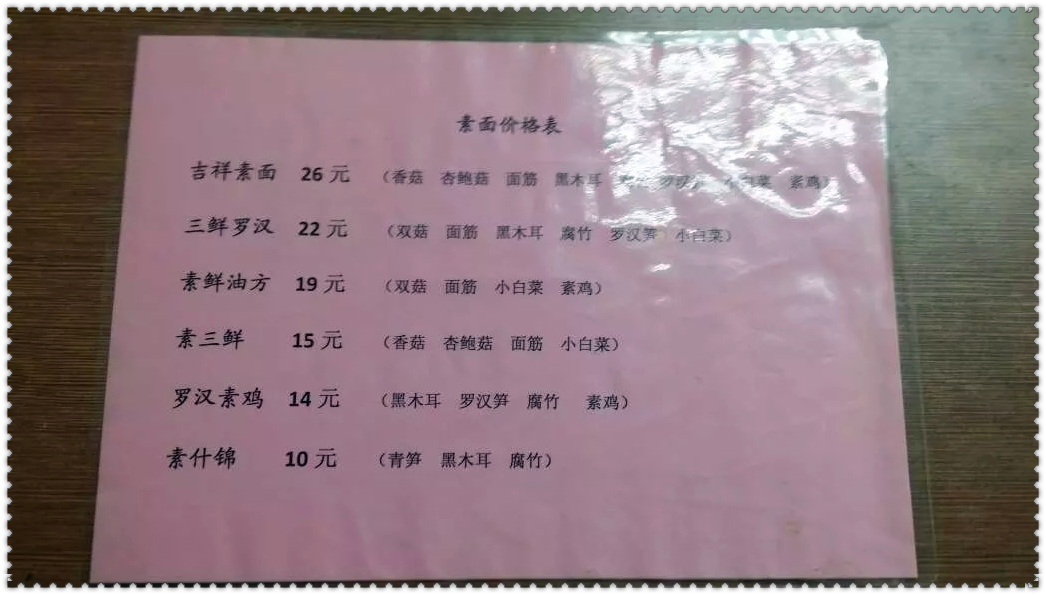 素面价格表
吉祥素面 26 元 （香菇 杏鲍菇 面筋 黑木耳 罗汉笋 小白菜 素鸡）
三鲜罗汉 22 元 （双菇 面筋 黑木耳 腐竹 罗汉笋 小白菜）
素鲜油方 19 元 （双菇 面筋 小白菜 素鸡）
素三鲜 15 元 （香菇 杏鲍菇 面筋 小白菜）
罗汉素鸡 14 元 （黑木耳 罗汉笋 腐竹 素鸡）
素什锦 10 元 （青笋 黑木耳 腐竹）